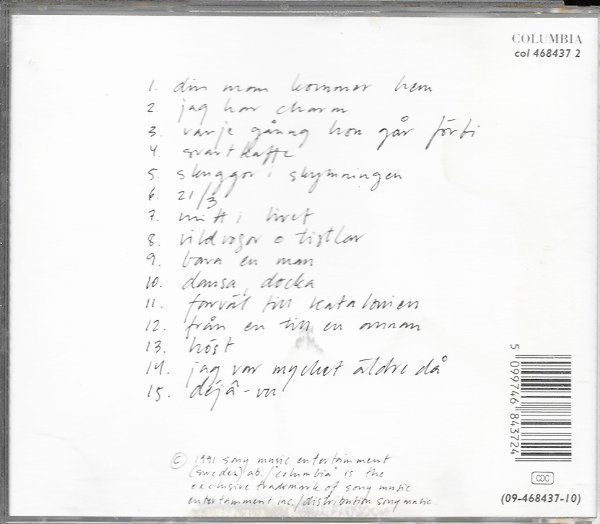 COLUMBIA
col 468437 2
1. din man kommer hem
2. jag har charm
3. varje gång hon går förbi
4. svart kaffe
5. skuggor i skymningen
6. 21/3
7. mitt i livet
8. vildrosor o tistlar
9. bara en man
10. dansa, docka
11. farväl till katalonien
12. från en till en annan
13. höst
14. jag var mycket äldre då
15. déjâ-vu
© 1991 sony music entertainment
(sweden) ab./"columbia" is the
exclusive trademark of sony music
entertainment inc./distribution sony music
5 099746 843724
CDC
(09-468437-10)